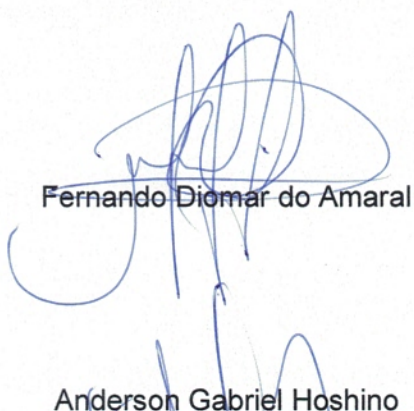 Fernando Diomar do Amaral
Anderson Gabriel Hoshino